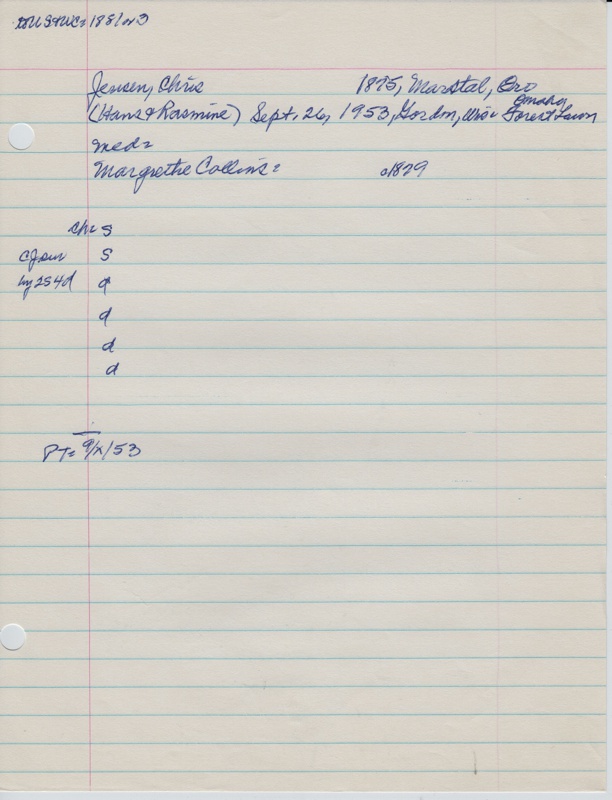 to US+WC= 1881 or 3
Jensen, Chris 1875, Marstal, Øro
(Hans & Rasmine) Sept. 26, 1953, Gordon, Wis= Omaha, Forest Lawn
med=
Margrethe Collins= a1879
Ch= S
S
by 2S4d d
d
d
d
PT= 9/X/53